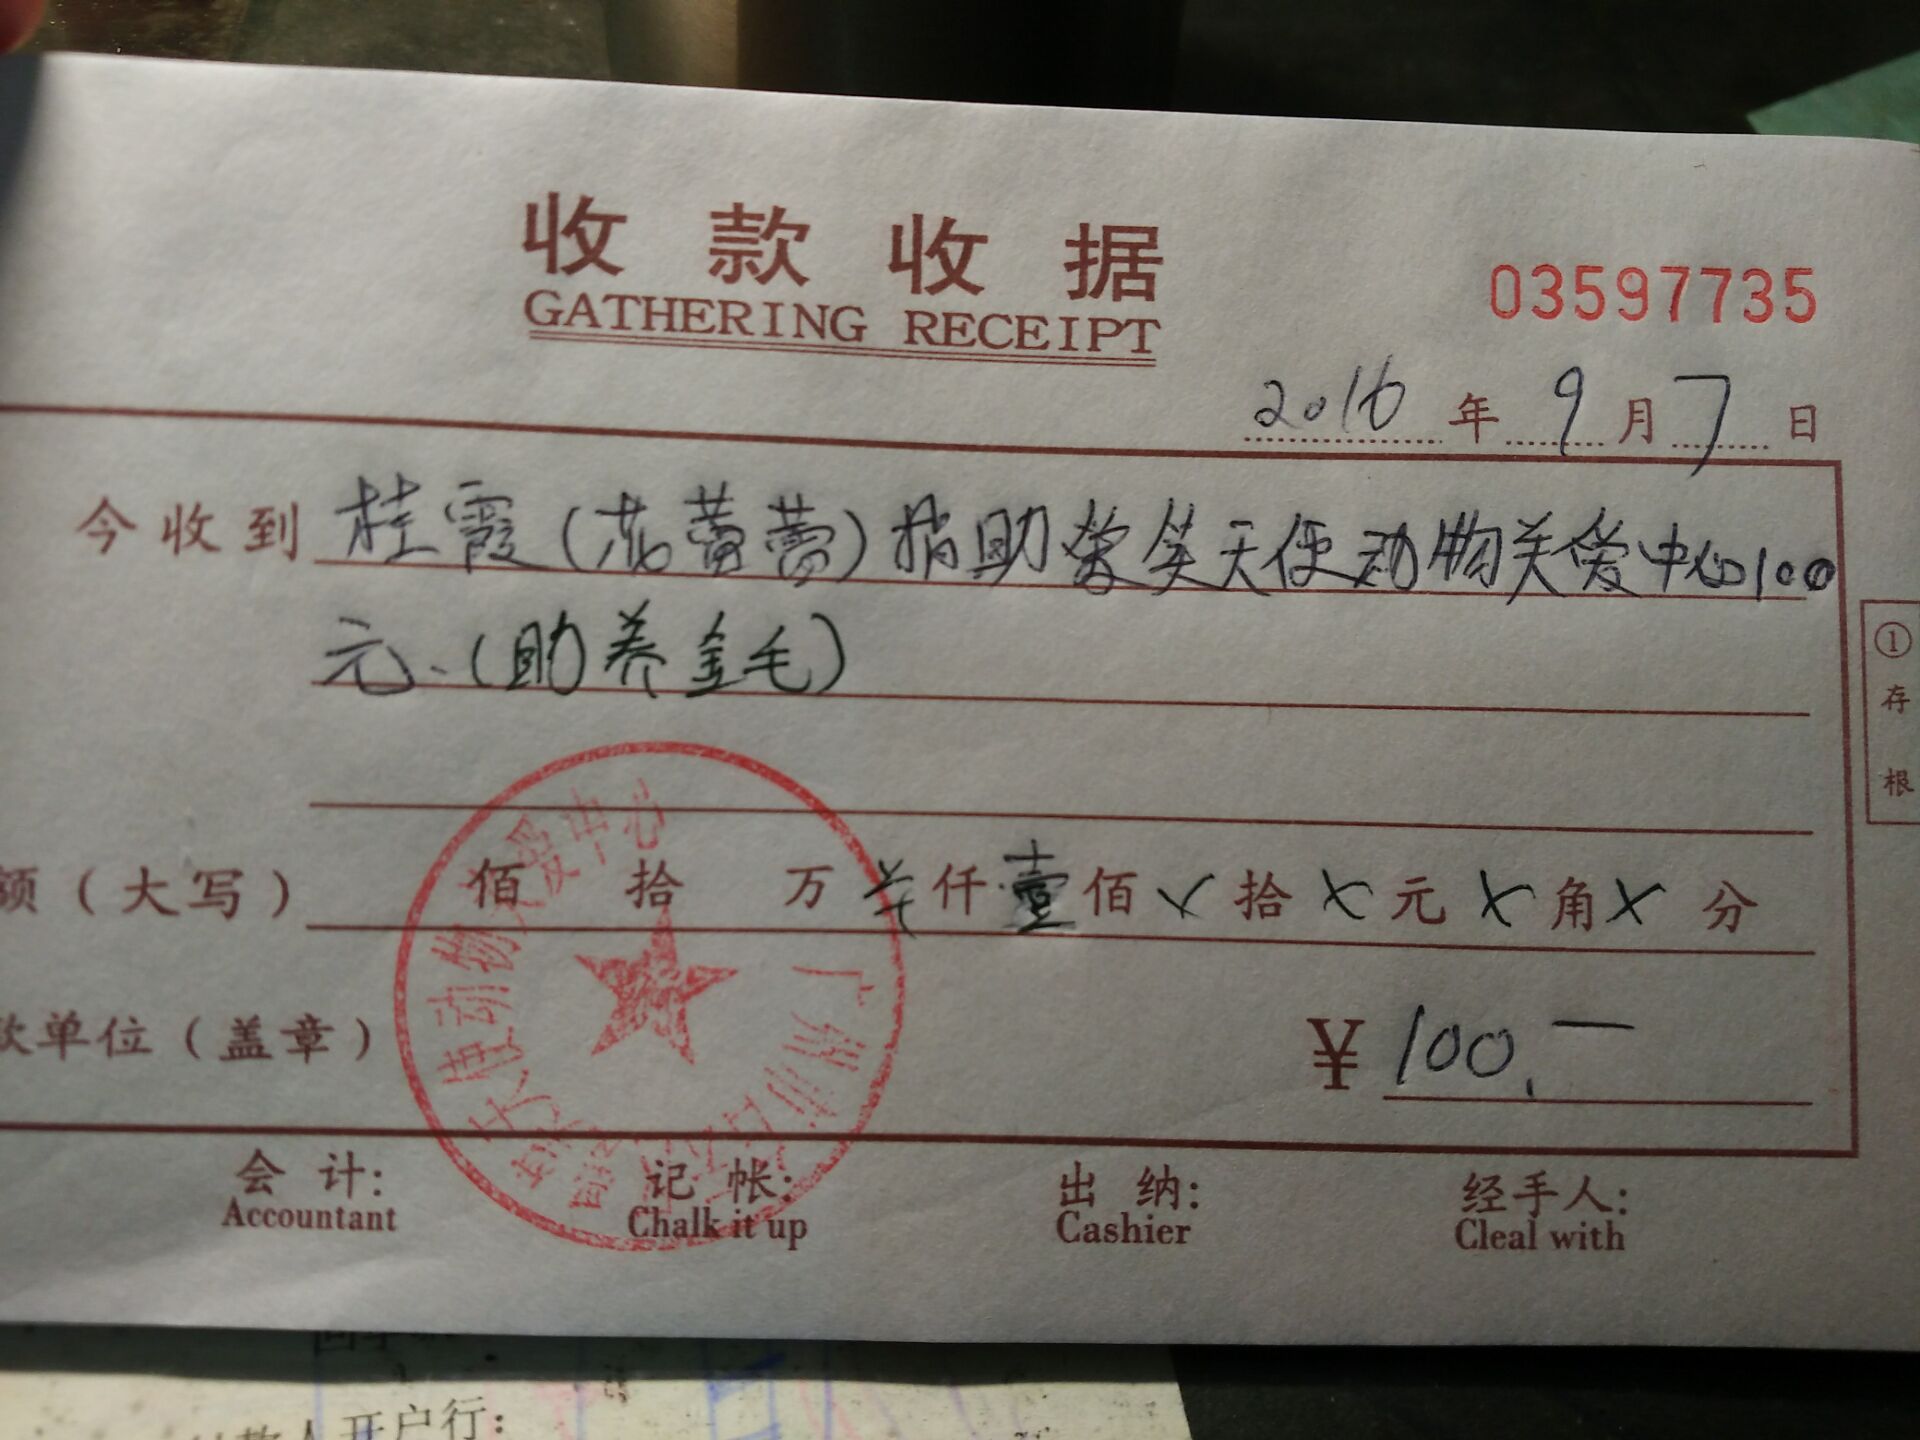 收款收据
GATHERING RECEIPT
03597735
2016年9月7日
今收到桂霞(花蕾蕾)捐助微笑天使动物关爱中心100
元.(助养金毛)
①存根
额(大写) 佰 拾 万 仟壹佰 拾 X 元 X 角 X 分
款单位(盖章) ¥100.一
天使动物关爱中心
广州市
会计: 记帐: 出纳: 经手人:
Accountant Chalk it up Cashier Cleal with
款人开户行: